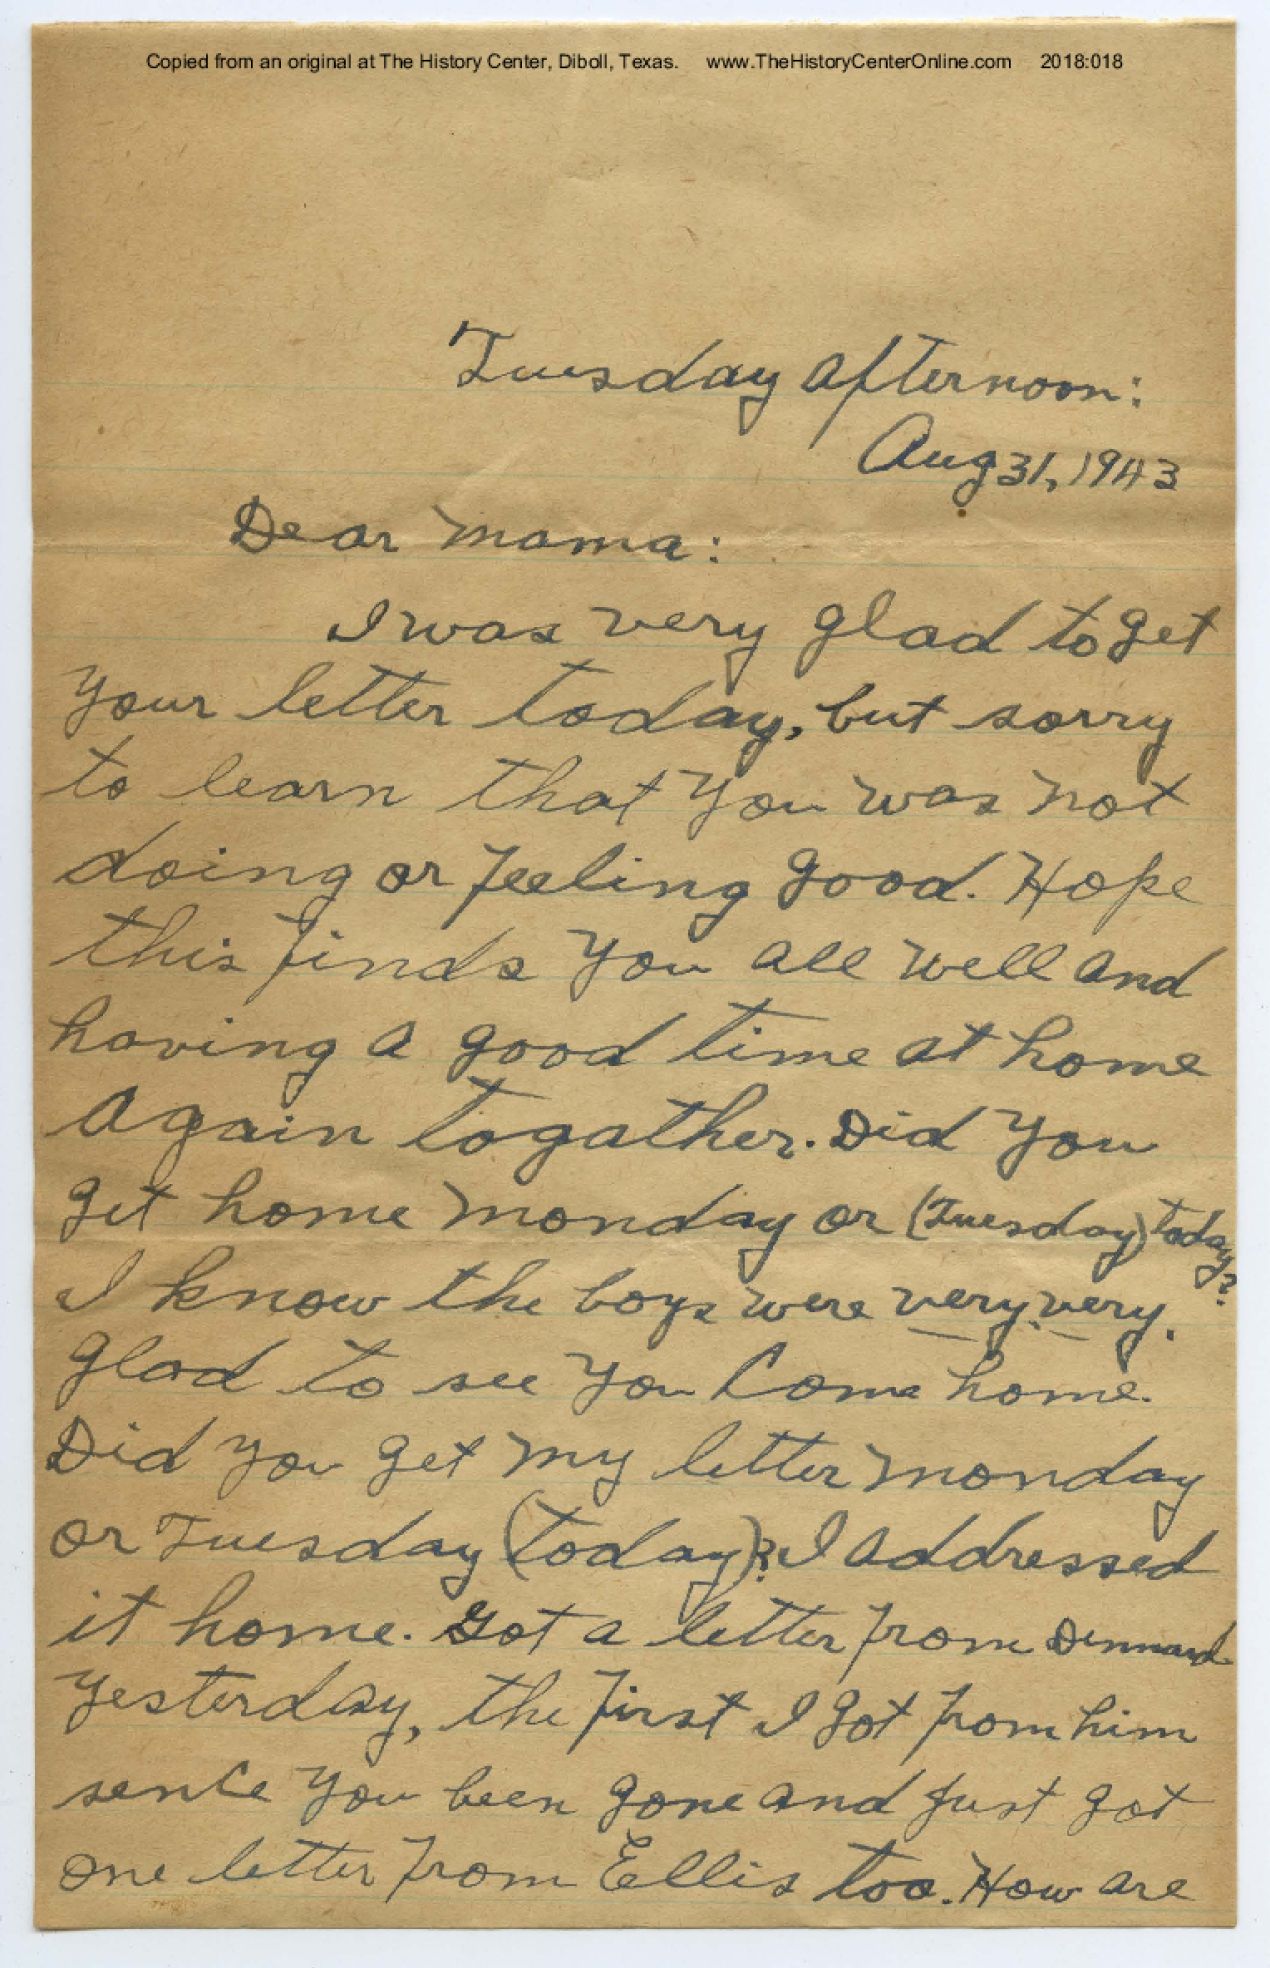 Copied from an original at The History Center, Diboll, Texas. www.TheHistoryCenterOnline.com 2018:018
Tuesday afternoon:
Aug 31, 1943
Dear Mama:
I was very glad to get
your letter today, but sorry
to learn that you was not
doing or feeling good. Hope
this finds you all well and
having a good time at home
again togather. Did you
get home Monday or (Tuesday) today?
I know the boys were very, very,
glad to see you Come home.
Did you get my letter Monday
or Tuesday (today)? I addressed
it home. Got a letter from Dennard
yesterday, the first I got from him
sence you been gone and just got
one letter from Ellis too. How are